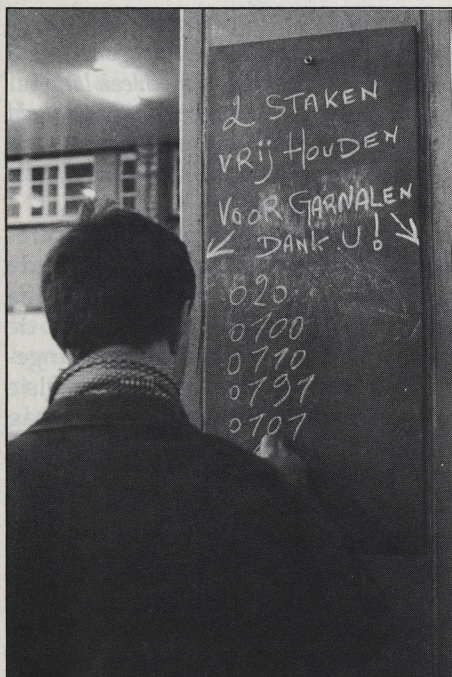 2 STAKEN
VRIJ HOUDEN
VOOR GARNALEN
DANK U!
020
0100
0110
0191
0101